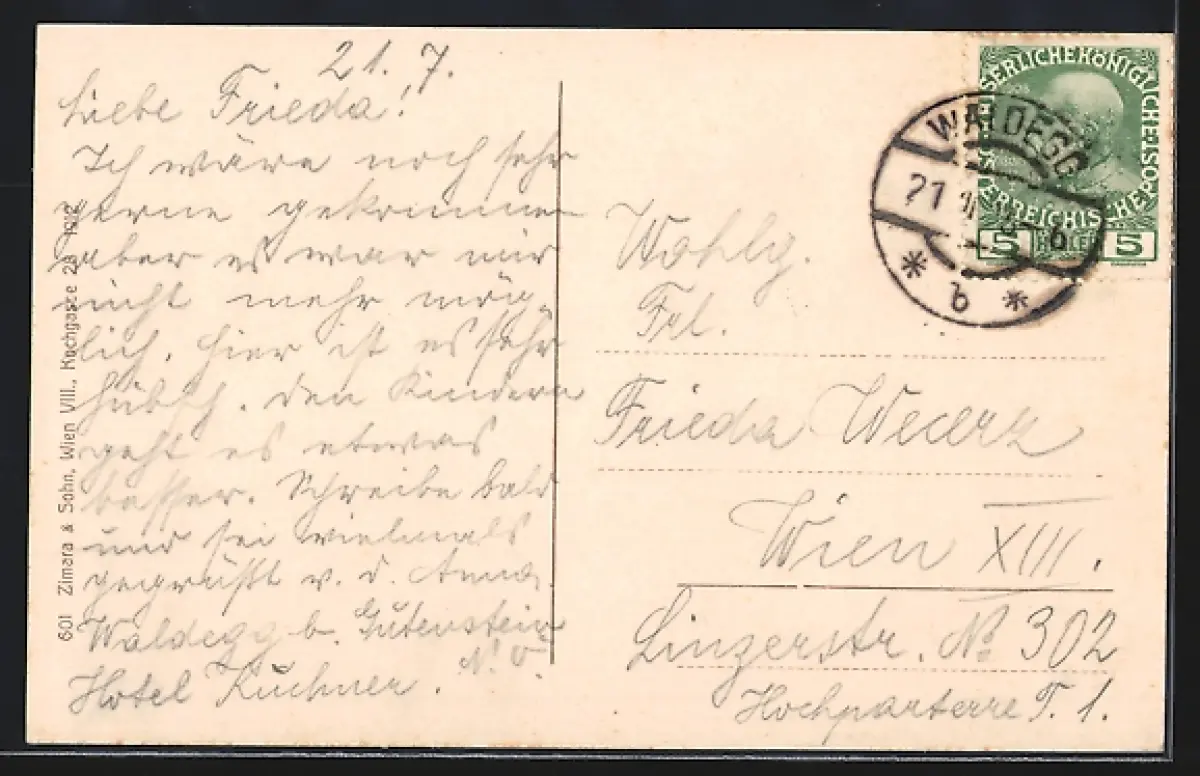 21. 7.
Liebe Frieda!
Ich wäre noch sehr
gerne gekommen
aber es war mir
nicht mehr mög-
lich. Hier ist es sehr
hübsch. Den Kindern
geht es etwas
besser. Schreibe bald
und sei vielmals
gegrüßt v. d. Anna.
Waldegg b. Gutenstein
N. Ö.
Hotel Kuchner.
601 Zimara & Sohn, Wien VIII., Kochgasse 28 1912
SERLICHEKÖNIGLICHE
ERREICHISCHEPOST
5 HELLER 5
WALDEGG
21
6
* b *
Wohlg.
Frl.
Frieda
Wien XIII.
Linzerstr. No 302
Hochparterre T. 1.